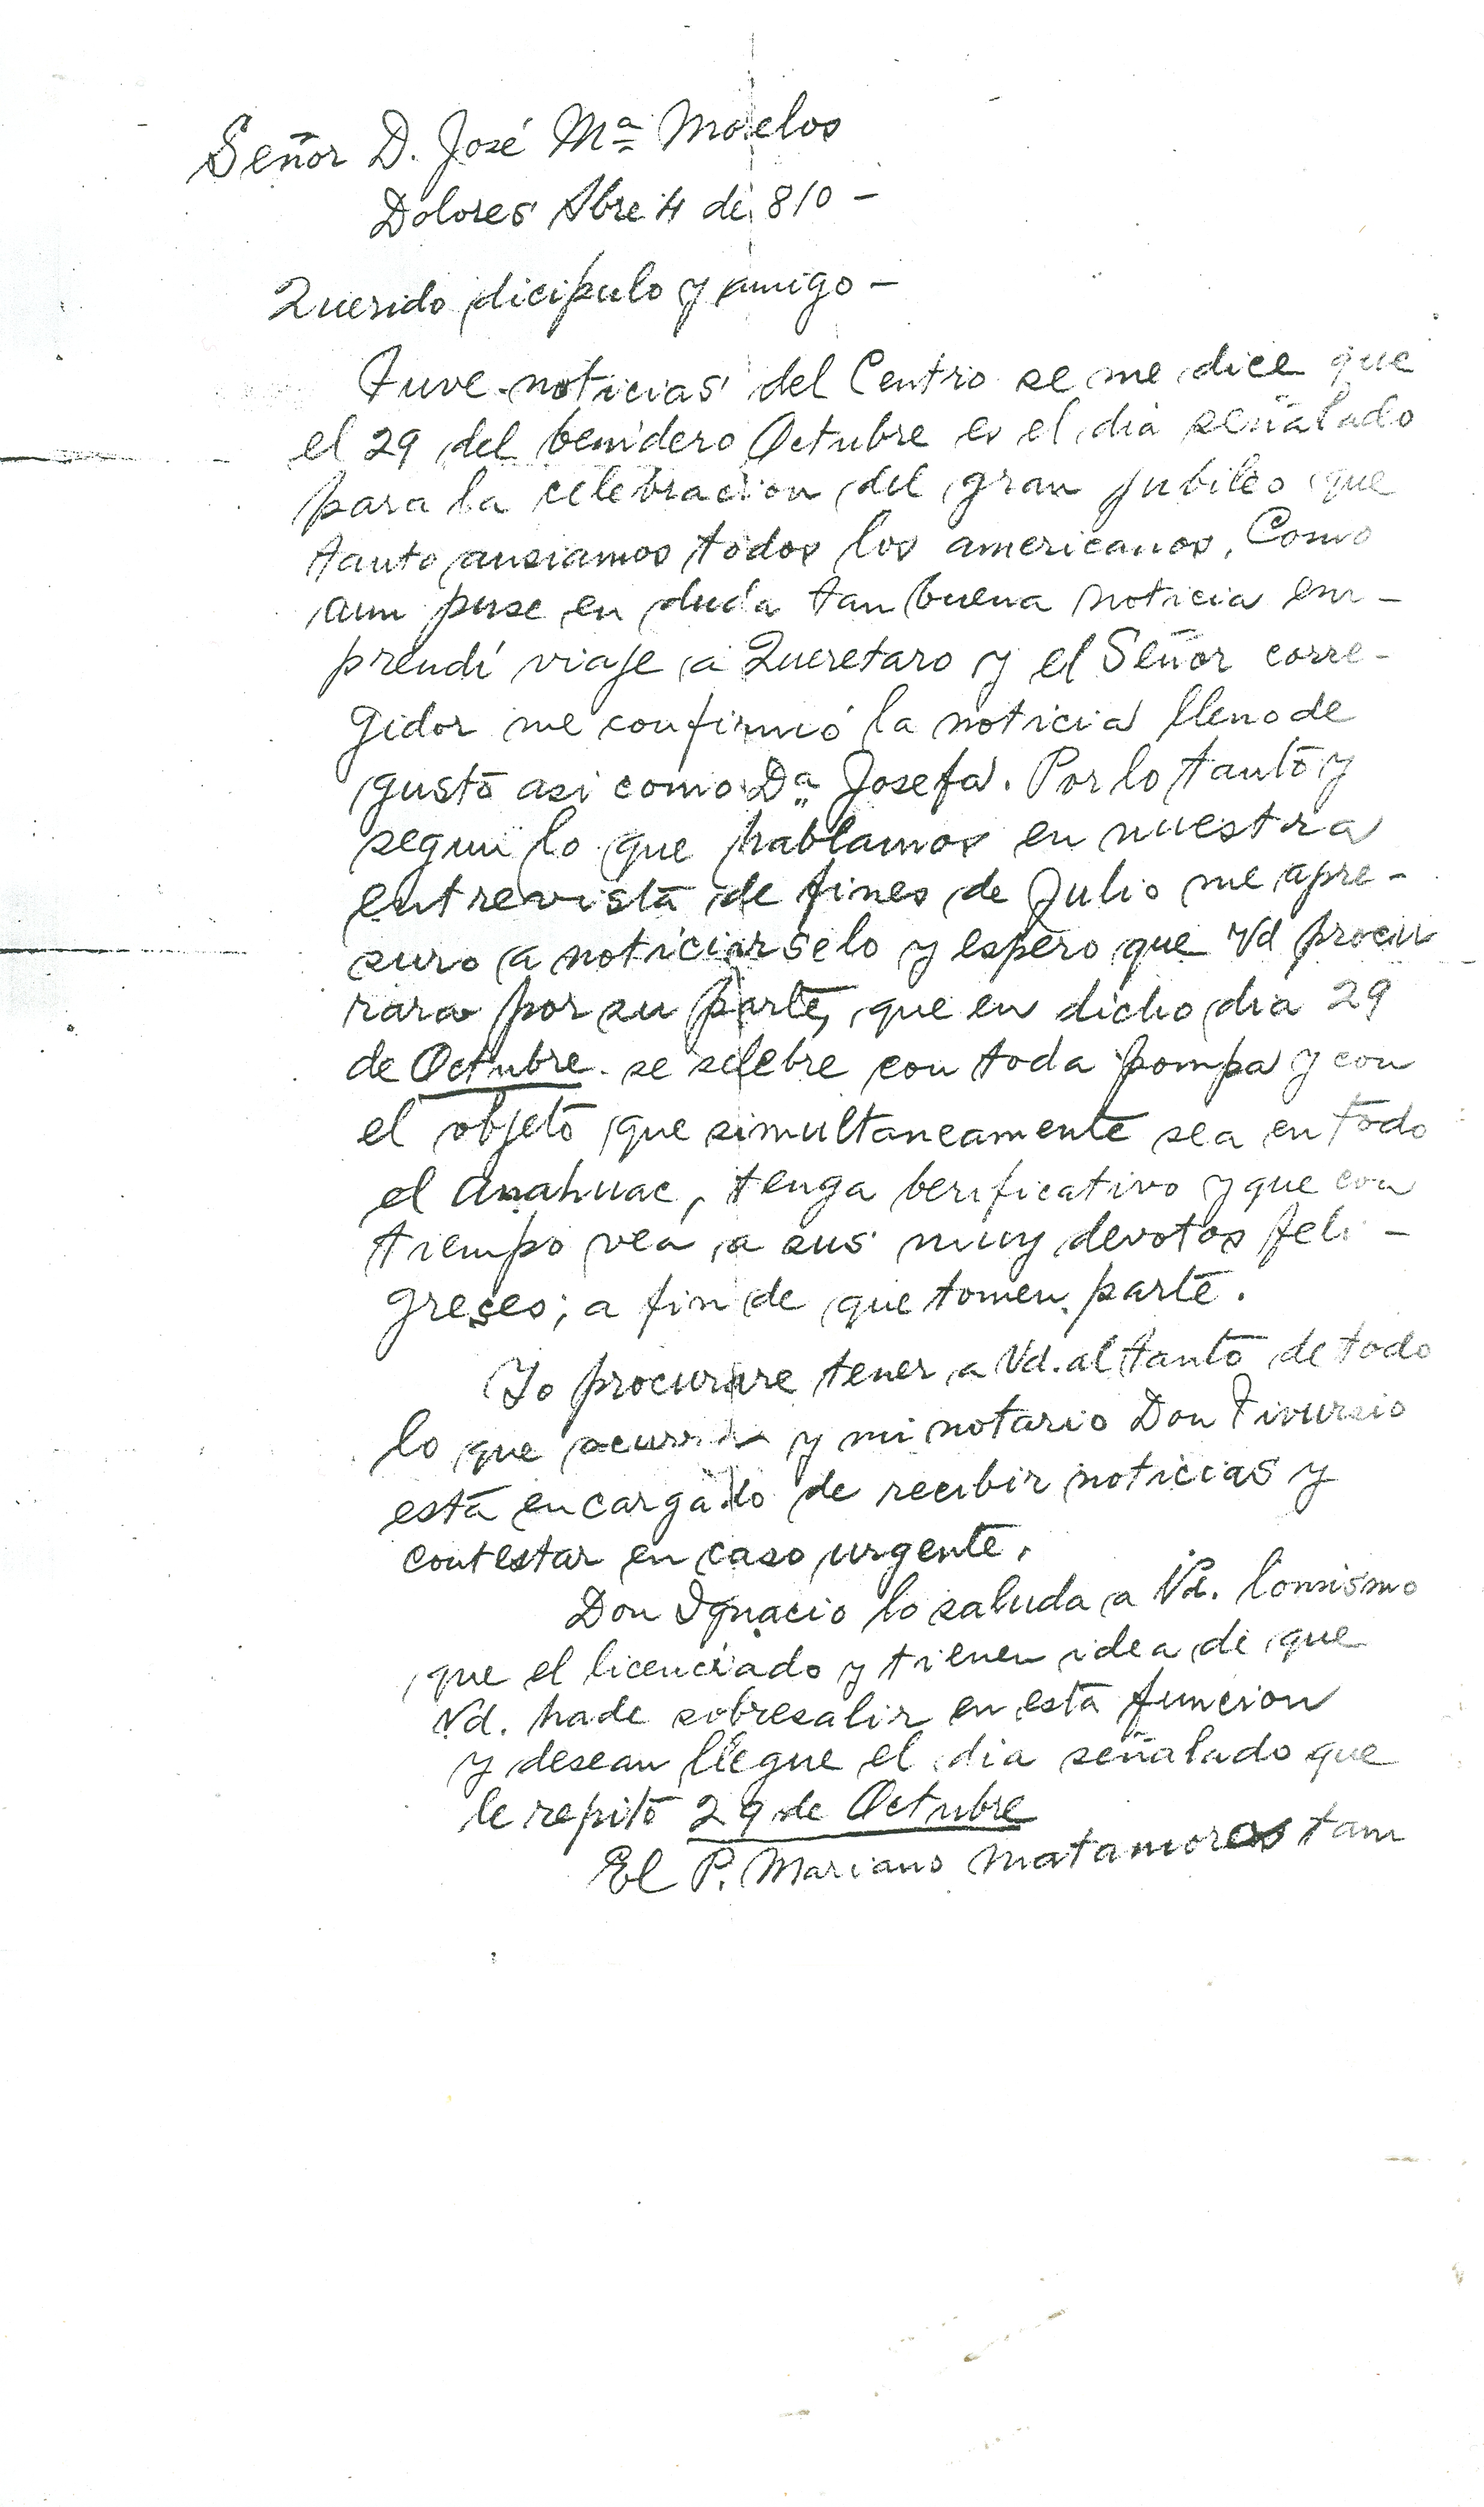 Señor D. José Mª Morelos
Dolores 8bre 4 de 810 –
Querido dicipulo y amigo –
Tuve noticias del Centro se me dice que
el 29 del benidero Octubre es el dia señalado
para la celebracion del gran jubileo que
tanto ansiamos todos los americanos. Como
aun puse en duda tan buena noticia em-
prendí viaje a Queretaro y el Señor corre-
gidor me confirmó la noticia lleno de
gusto asi como Dª Josefa. Por lo tanto y
segun lo que hablamos en nuestra
entrevista de fines de Julio me apre-
suro a noticiarselo y espero que Vd procu
rara por su parte, que en dicho dia 29
de Octubre se selebre con toda pompa y con
el objeto que simultaneamente sea en todo
el Anahuac, tenga berificativo y que con
tiempo vea a sus muy devotos feli-
greses; a fin de que tomen parte.
Yo procurare tener a Vd. al tanto de todo
lo que y mi notario Don Tivursio
está encargado de recibir noticias y
contestar en caso urgente.
Don Ignacio lo saluda a Vd. lo mismo
que el licenciado y tienen idea de que
Vd. hade sobresalir en esta funcion
y desean llegue el dia señalado que
le repito 29 de Octubre
El P. Mariano Matamoros tam